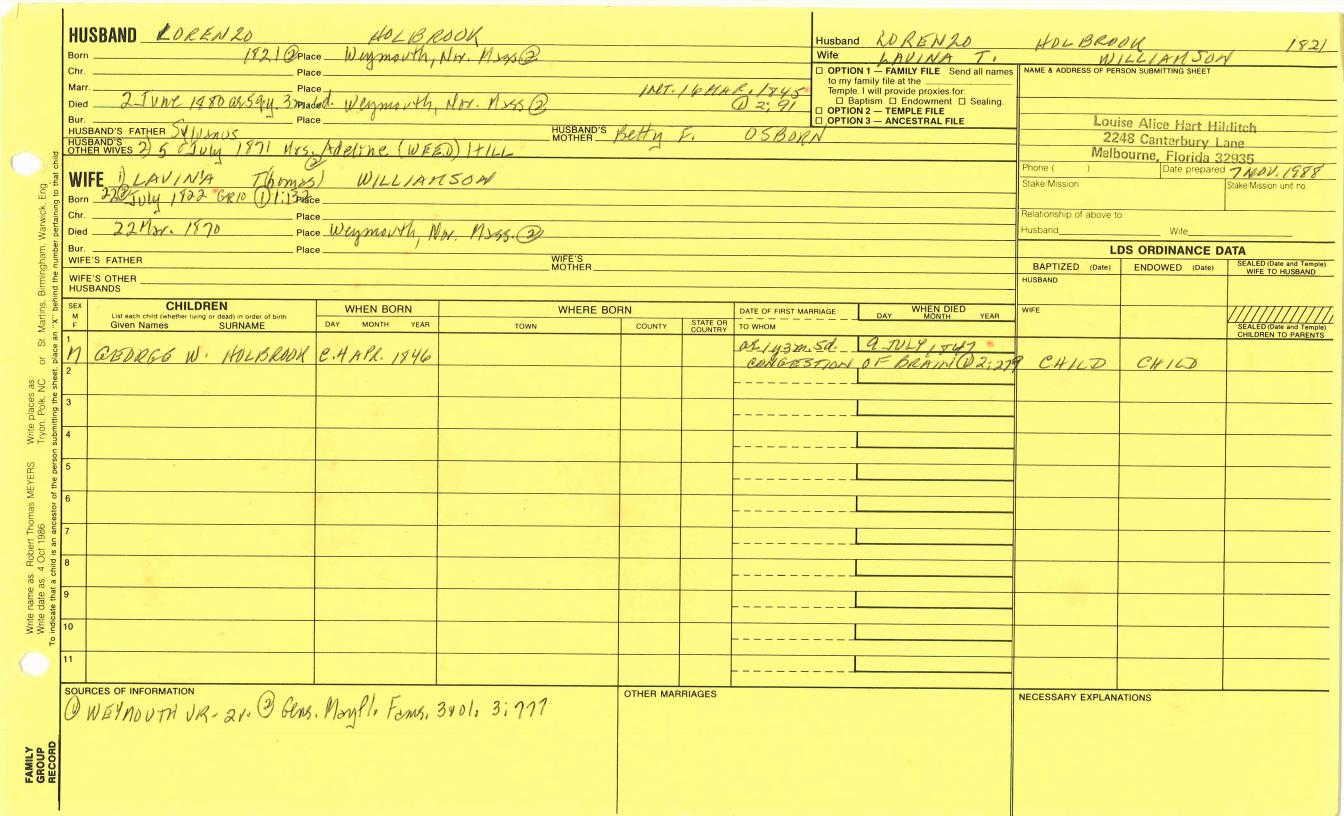 HUSBAND LORENZO HOLBROOK
Born 1821 ② Place Weymouth, Nor. Mass ②
Chr. Place
Marr. Place INT. 16 MAR. 1845
Died 2 June 1880 Place Weymouth, Nor. Mass ② ① 2:91
Bur. Place
HUSBAND'S FATHER Sylvanus HUSBAND'S MOTHER Betty E. OSBORN
HUSBAND'S OTHER WIVES 2) 5 July 1871 Mrs. Adeline (WEED) HILL
②
WIFE 1) LAVINA Thomas) WILLIAMSON
Born July 1822 GR10 ① 1:132 Place
Chr. Place
Died 22 Mar. 1870 Place Weymouth, Nor. Mass. ②
Bur. Place
WIFE'S FATHER WIFE'S MOTHER
WIFE'S OTHER HUSBANDS
Husband LORENZO HOLBROOK 1821
Wife LAVINA T. WILLIAMSON
☐ OPTION 1 — FAMILY FILE Send all names
to my family file at the
Temple. I will provide proxies for
☐ Baptism ☐ Endowment ☐ Sealing.
☐ OPTION 2 — TEMPLE FILE
☐ OPTION 3 — ANCESTRAL FILE
NAME & ADDRESS OF PERSON SUBMITTING SHEET
Louise Alice Hart Hilditch
2248 Canterbury Lane
Melbourne, Florida 32935
Phone ( ) Date prepared 7 NOV. 1988
Stake/Mission Stake/Mission unit no.
Relationship of above to
Husband Wife
LDS ORDINANCE DATA
BAPTIZED (Date) ENDOWED (Date) SEALED (Date and Temple) WIFE TO HUSBAND
HUSBAND
WIFE
SEALED (Date and Temple) CHILDREN TO PARENTS
SEX M F
CHILDREN
List each child (whether living or dead) in order of birth
Given Names SURNAME
WHEN BORN
DAY MONTH YEAR
WHERE BORN
TOWN COUNTY STATE OR COUNTRY
DATE OF FIRST MARRIAGE
TO WHOM
WHEN DIED
DAY MONTH YEAR
1
M GEORGE W. HOLBROOK c. 4 APR. 1846 ae 1y 3m 5d. 9 JULY 1847
CONGESTION OF BRAIN ① 2:279 CHILD CHILD
2
3
4
5
6
7
8
9
10
11
SOURCES OF INFORMATION
① WEYMOUTH VR- 2v. ② Gens. Mayfl. Fams, 3vol. 3:777
OTHER MARRIAGES
NECESSARY EXPLANATIONS
Write name as Robert Thomas MEYERS Write places as Tryon, Polk, NC or St. Martins, Birmingham, Warwick, Eng
Write date as 4 Oct 1986
To indicate that a child is an ancestor of the person submitting the sheet, place an "X" behind the number pertaining to that child
FAMILY GROUP RECORD